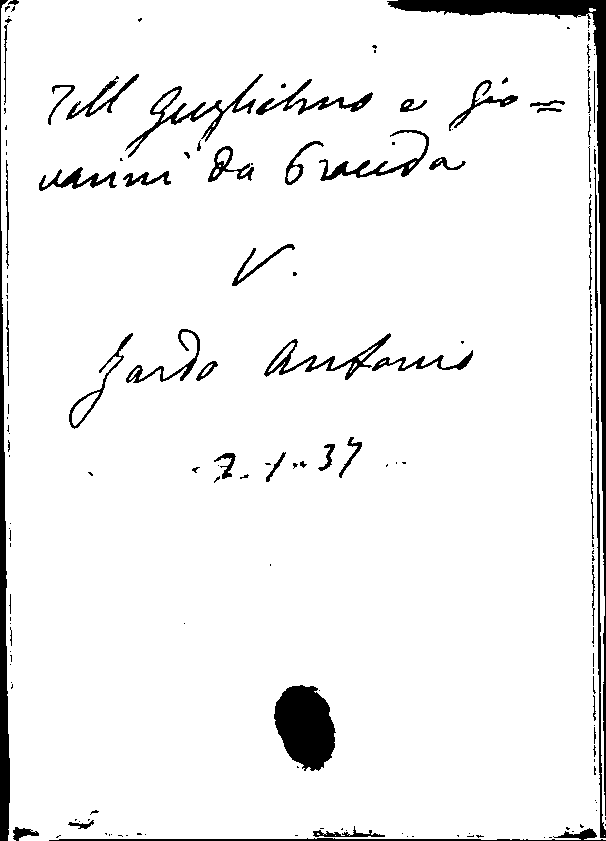 Tell Guglielmo e Gio=
vanni da Procida
V.
Zardo Antonio
7.1.37